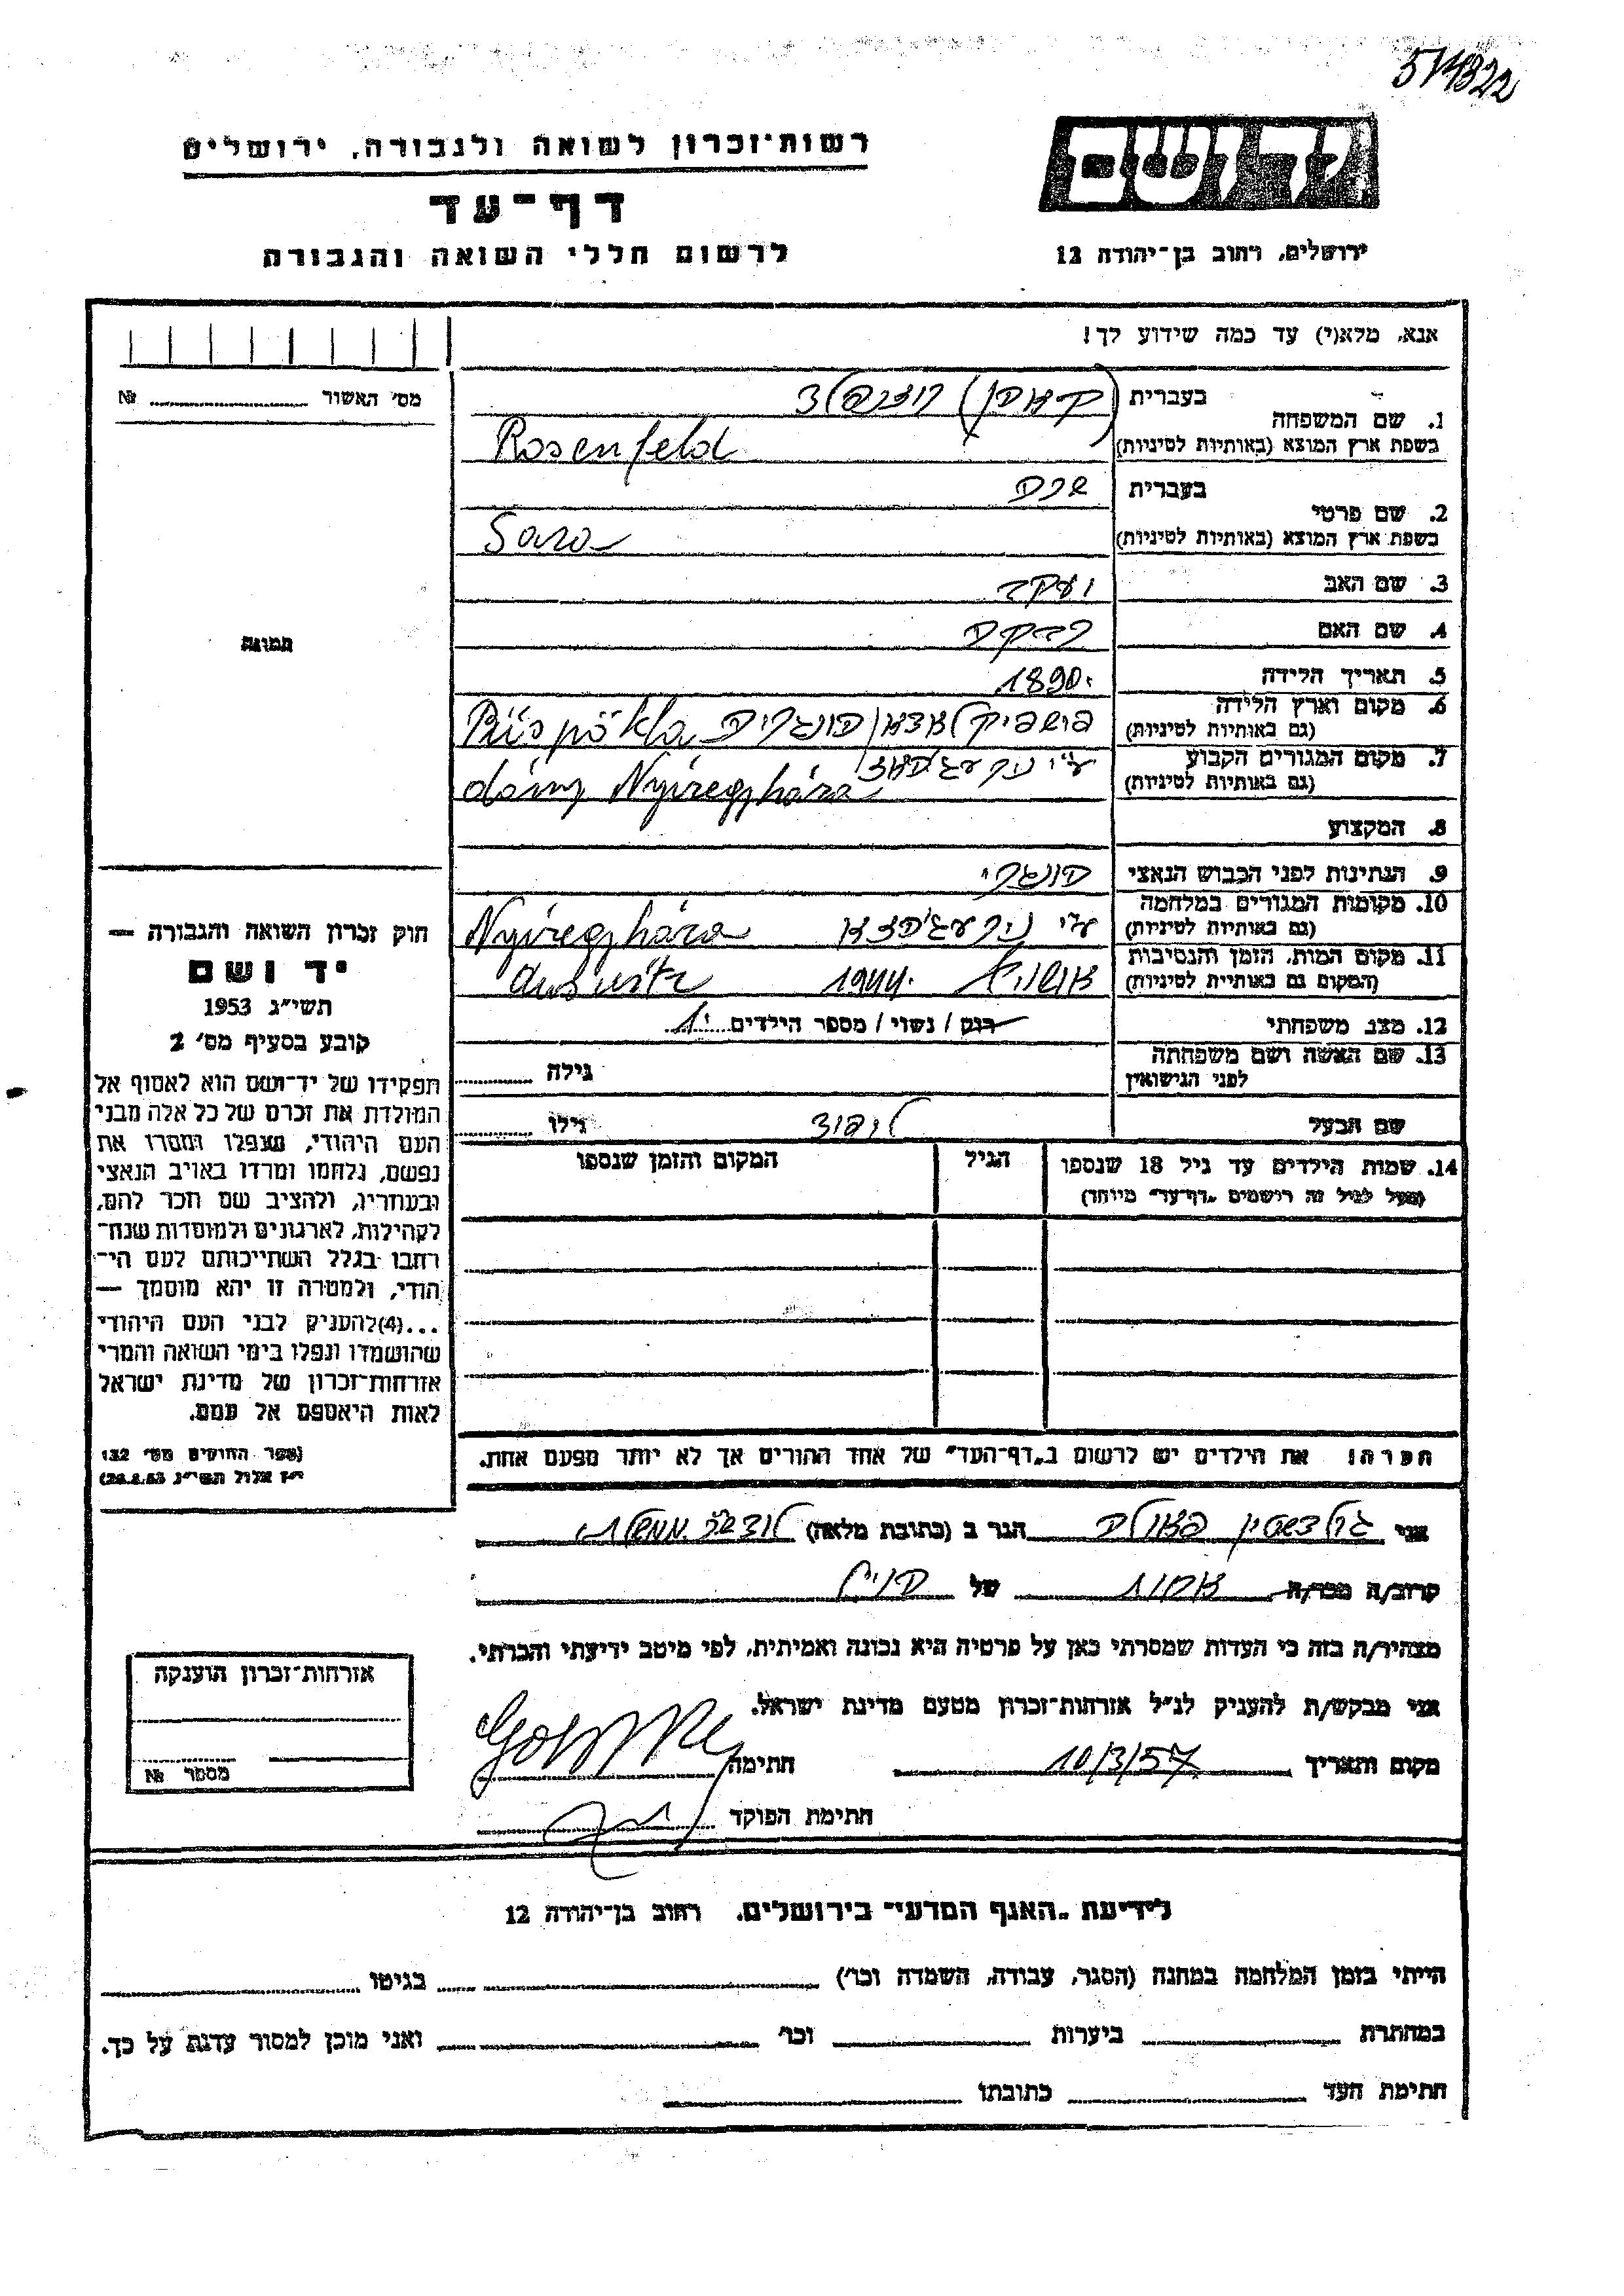 574322
רשות־זכרון לשואה ולגבורה, ירושלים
דף־עד
לרשום חללי השואה והגבורה
ירושלים, רחוב בן־יהודה 12
אנא, מלא(י) עד כמה שידוע לך!
מס' האשור № 
1. שם המשפחה
בעברית רוזנפלד
בשפת ארץ המוצא (באותיות לטיניות) Rosenfeld
2. שם פרטי
בעברית שרה
בשפת ארץ המוצא (באותיות לטיניות) Sara
3. שם האב יעקב
4. שם האם רבקה
5. תאריך הלידה 1890.
6. מקום וארץ הלידה
(גם באותיות לטיניות) הונגריה Püspökla
7. מקום המגורים הקבוע
(גם באותיות לטיניות) dány Nyíregyháza
8. המקצוע
9. הנתינות לפני הכבוש הנאצי הונגרי
10. מקומות המגורים במלחמה
(גם באותיות לטיניות) ע"י Nyíregyháza
11. מקום המות, הזמן והנסיבות
(המקום גם באותיות לטיניות) 1944.
12. מצב משפחתי רווק / נשוי / מספר הילדים
13. שם האשה ושם משפחתה
לפני הנישואין
גילה
שם הבעל
גילו
14. שמות הילדים עד גיל 18 שנספו
(מעל לגיל זה רושמים "דף־עד" מיוחד)
הגיל
המקום והזמן שנספו
הערה: את הילדים יש לרשום ב"דף־העד" של אחד ההורים אך לא יותר מפעם אחת.
תמונה
חוק זכרון השואה והגבורה —
יד ושם
תשי"ג 1953
קובע בסעיף מס' 2
תפקידו של יד־ושם הוא לאסוף אל
המולדת את זכרם של כל אלה מבני
העם היהודי, שנפלו ומסרו את
נפשם, נלחמו ומרדו באויב הנאצי
ובעוזריו, ולהציב שם וזכר להם,
לקהילות, לארגונים ולמוסדות שנח־
רבו בגלל השתייכותם לעם הי־
הודי, ולמטרה זו יהא מוסמך —
...(4) להעניק לבני העם היהודי
שהושמדו ונפלו בימי השואה והמרי
אזרחות־זכרון של מדינת ישראל
לאות היאספם אל עמם.
(ספר החוקים מס' 132
י"ז אלול תשי"ג 28.8.53)
אני גולדשטין הגר ב (כתובת מלאה)
קרוב/ה מכר/ה אחות של
מצהיר/ה בזה כי העדות שמסרתי כאן על פרטיה היא נכונה ואמיתית, לפי מיטב ידיעתי והכרתי.
אני מבקש/ת להעניק לנ"ל אזרחות־זכרון מטעם מדינת ישראל.
מקום ותאריך 10/3/57 חתימה
חתימת הפוקד
אזרחות־זכרון הוענקה
מספר №
לידיעת "האגף המדעי" בירושלים, רחוב בן־יהודה 12
הייתי בזמן המלחמה במחנה (הסגר, עבודה, השמדה וכו') בגיטו
במחתרת ביערות וכו' ואני מוכן למסור עדות על כך.
חתימת העד כתובתו